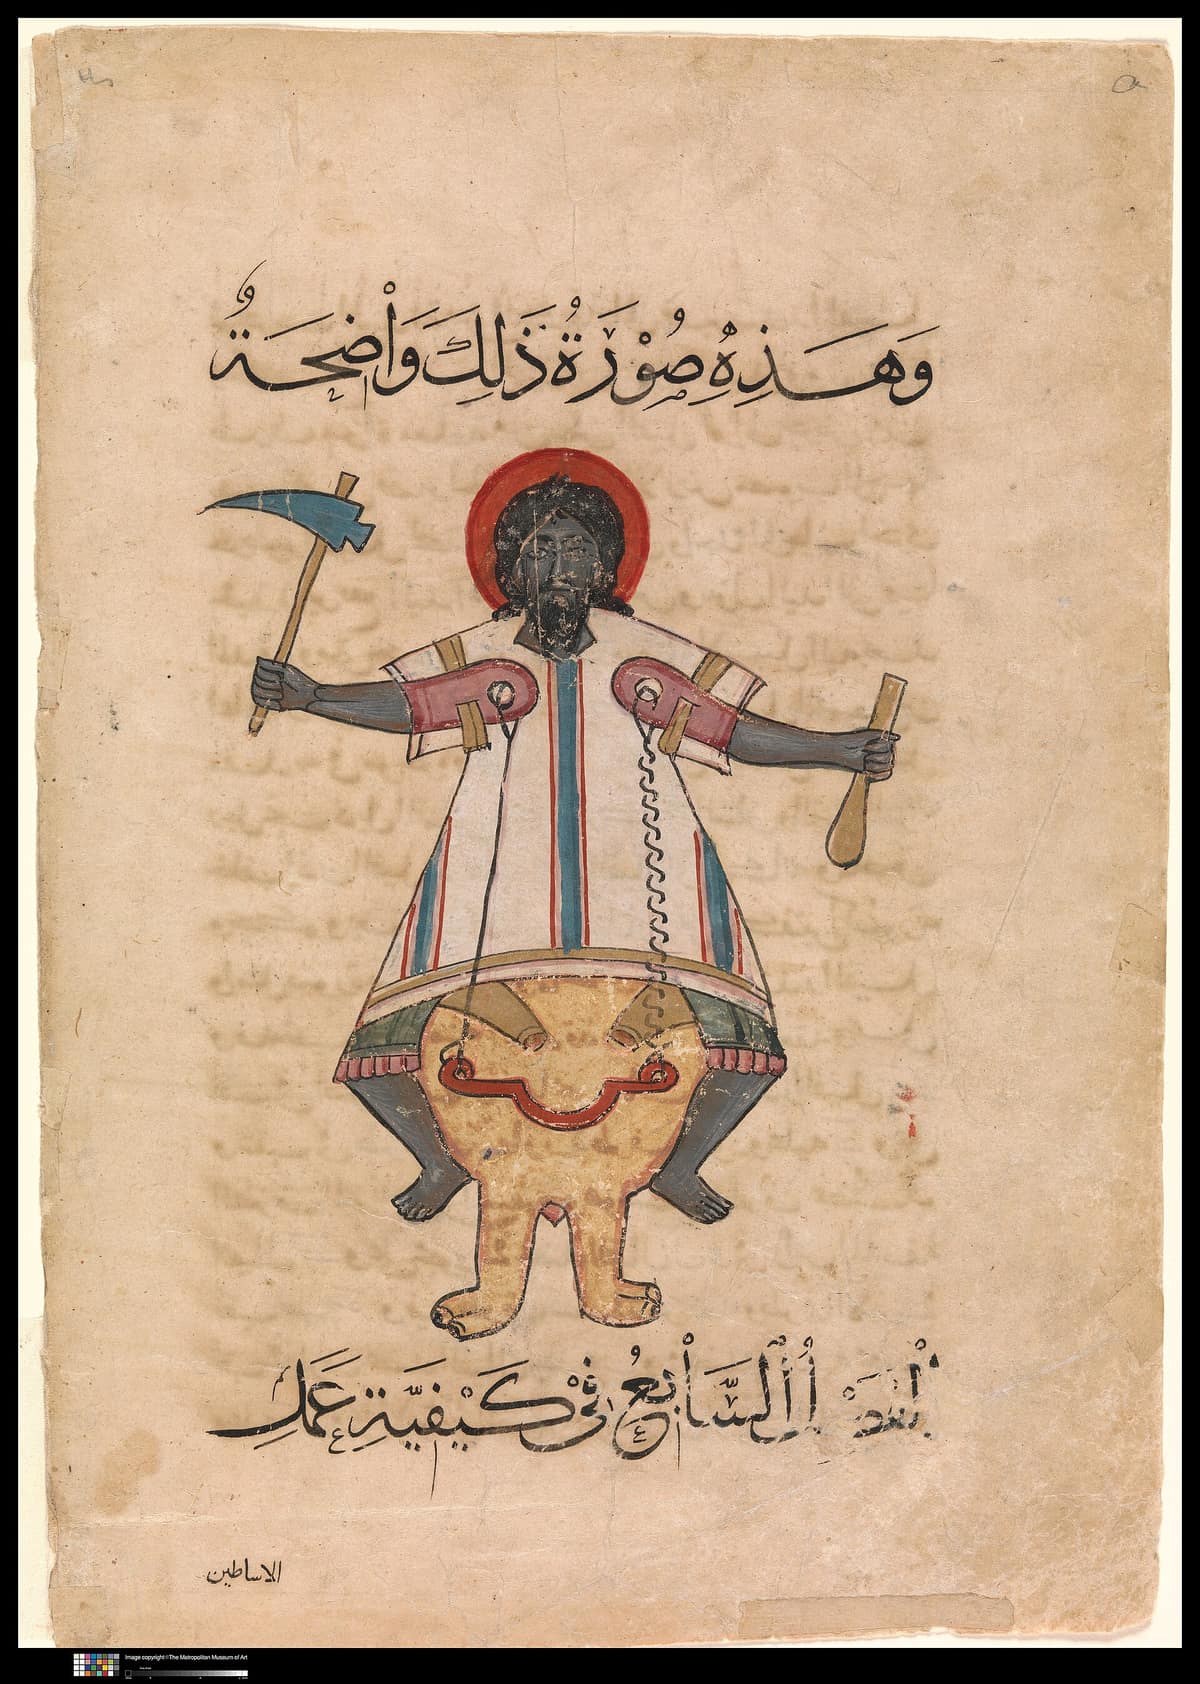 وَهَذِهِ صُوْرَةُ ذَلِكَ وَاْضِحَةٌ
الفصل السَّاْبِعُ فِيْ كَيْفِيَّةِ عَمَلِ
الاساطين
Image copyright © The Metropolitan Museum of Art